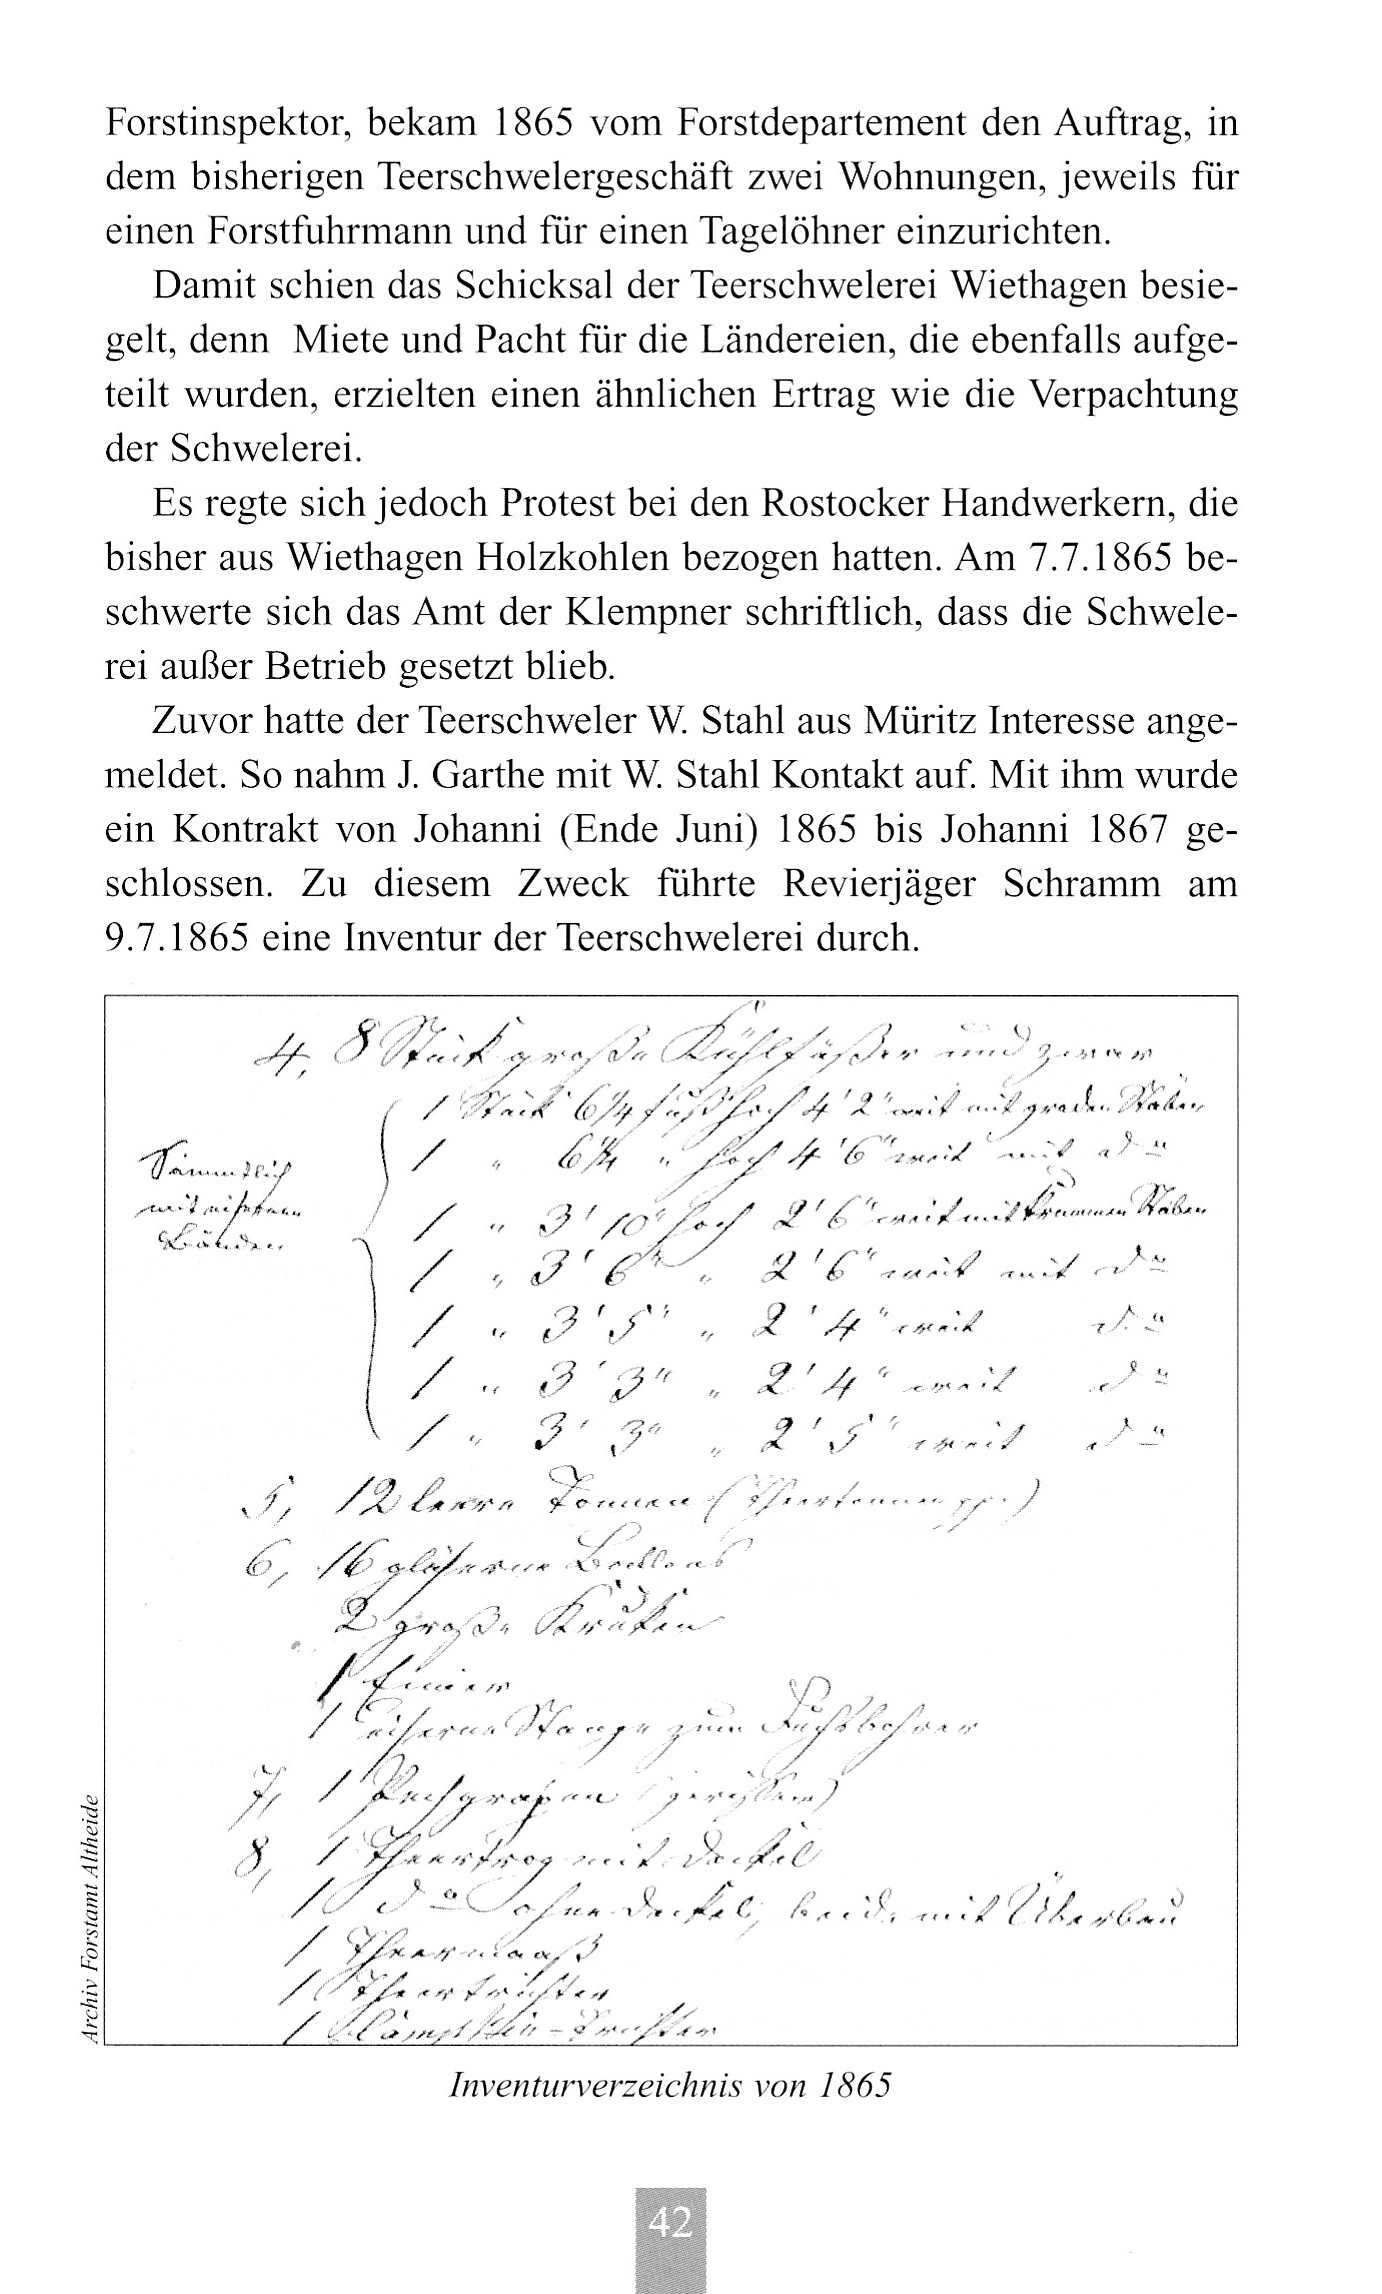 Forstinspektor, bekam 1865 vom Forstdepartement den Auftrag, in
dem bisherigen Teerschwelergeschäft zwei Wohnungen, jeweils für
einen Forstfuhrmann und für einen Tagelöhner einzurichten.
Damit schien das Schicksal der Teerschwelerei Wiethagen besie-
gelt, denn Miete und Pacht für die Ländereien, die ebenfalls aufge-
teilt wurden, erzielten einen ähnlichen Ertrag wie die Verpachtung
der Schwelerei.
Es regte sich jedoch Protest bei den Rostocker Handwerkern, die
bisher aus Wiethagen Holzkohlen bezogen hatten. Am 7.7.1865 be-
schwerte sich das Amt der Klempner schriftlich, dass die Schwele-
rei außer Betrieb gesetzt blieb.
Zuvor hatte der Teerschweler W. Stahl aus Müritz Interesse ange-
meldet. So nahm J. Garthe mit W. Stahl Kontakt auf. Mit ihm wurde
ein Kontrakt von Johanni (Ende Juni) 1865 bis Johanni 1867 ge-
schlossen. Zu diesem Zweck führte Revierjäger Schramm am
9.7.1865 eine Inventur der Teerschwelerei durch.
4, 8 Stück große Kühlfäßer und zwar
1 Stück 6¼ fuß hoch 4' 2" weit mit graden Stäben
1 " 6¼ " hoch 4' 6" weit mit do
Sämmtlich
mit eisernen
Bänden
1 " 3' 10" hoch 2' 6" weit mit krummen Stäben
1 " 3' 6" " 2' 6" weit mit do
1 " 3' 5" " 2' 4" weit do
1 " 3' 3" " 2' 4" weit do
1 " 3' 3" " 2' 5" weit do
5, 12 leere Tonnen (Theertonnen pp.)
6, 16 gläserne Ballons
2 große Kruken
1 Eimer
1 eiserne Stange zum Fuchsbohrer
7, 1 Pechgrapen (gerissen)
8, 1 Theertrog mit Deckel
1 do ohne Deckel, beide mit Überbau
1 Theermaaß
1 Theertrichter
1 Trichter
Archiv Forstamt Altheide
Inventurverzeichnis von 1865
42